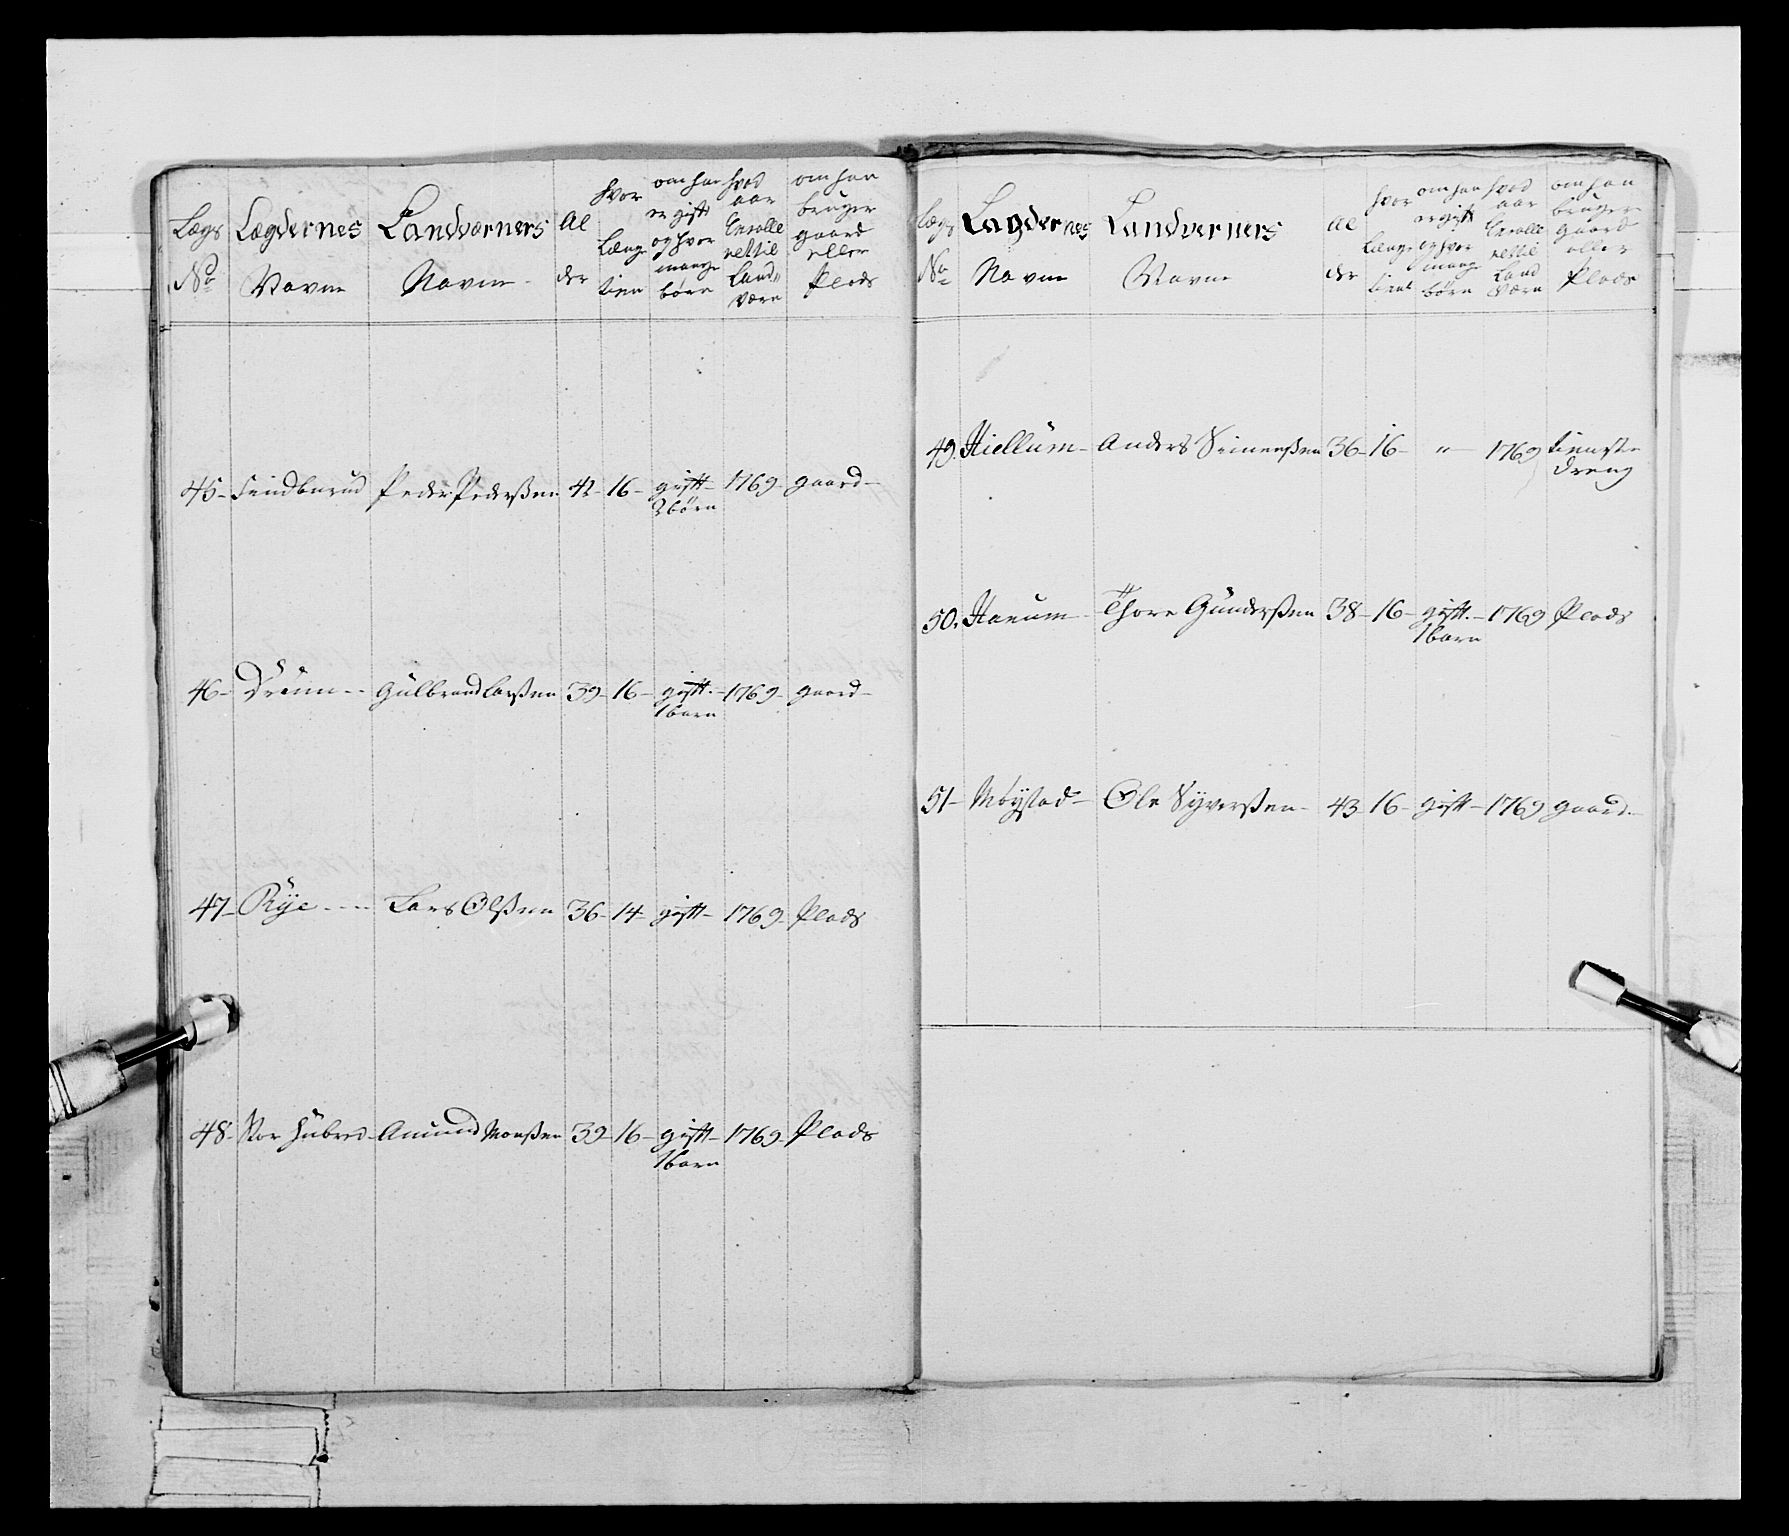 Lægs No
Lægdernes Navne
Landværners Navne
Alder
hvor Længe tien
om han er gift og hvor mange børn
hvad aar Enrolleret til Landværn
om han bruger gaard eller Plads
45 - Findberud Peder Pederßen 42 - 16 - gift - 2 børn 1769 - gaard -
46 - Gulbrand Larßen 39 - 16 - gift - 1 barn 1769 - gaard -
47 - Rÿe - - - Lars Olßen 36 - 14 - gift - 1769 - Plads
48 - Stor Hubred - Amund Monßen 39 - 16 - gift - 1 barn 1769 - Plads
Lægs No
Lagdernes Navne
Landverners Navne
Alder
hvor Længe tient
om han er gift og hvor mange børn
hvad aar Enrolleret til Land Værn
om han bruger gaard eller Plads
49. Hiellum - Anders Simenßen 36 - 16 - " - 1769 tienste dreng
50. Thore Gunderßen 38 - 16 - gift. - 1 barn 1769 Plads
51 - Møÿstad - Ole Syverßen - 43 - 16 - gift - 1769 gaard -